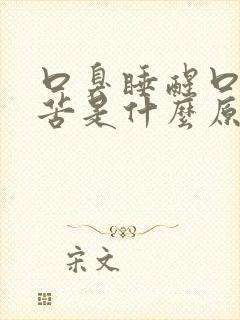 口臭睡醒口
苦是什麼原
宋文